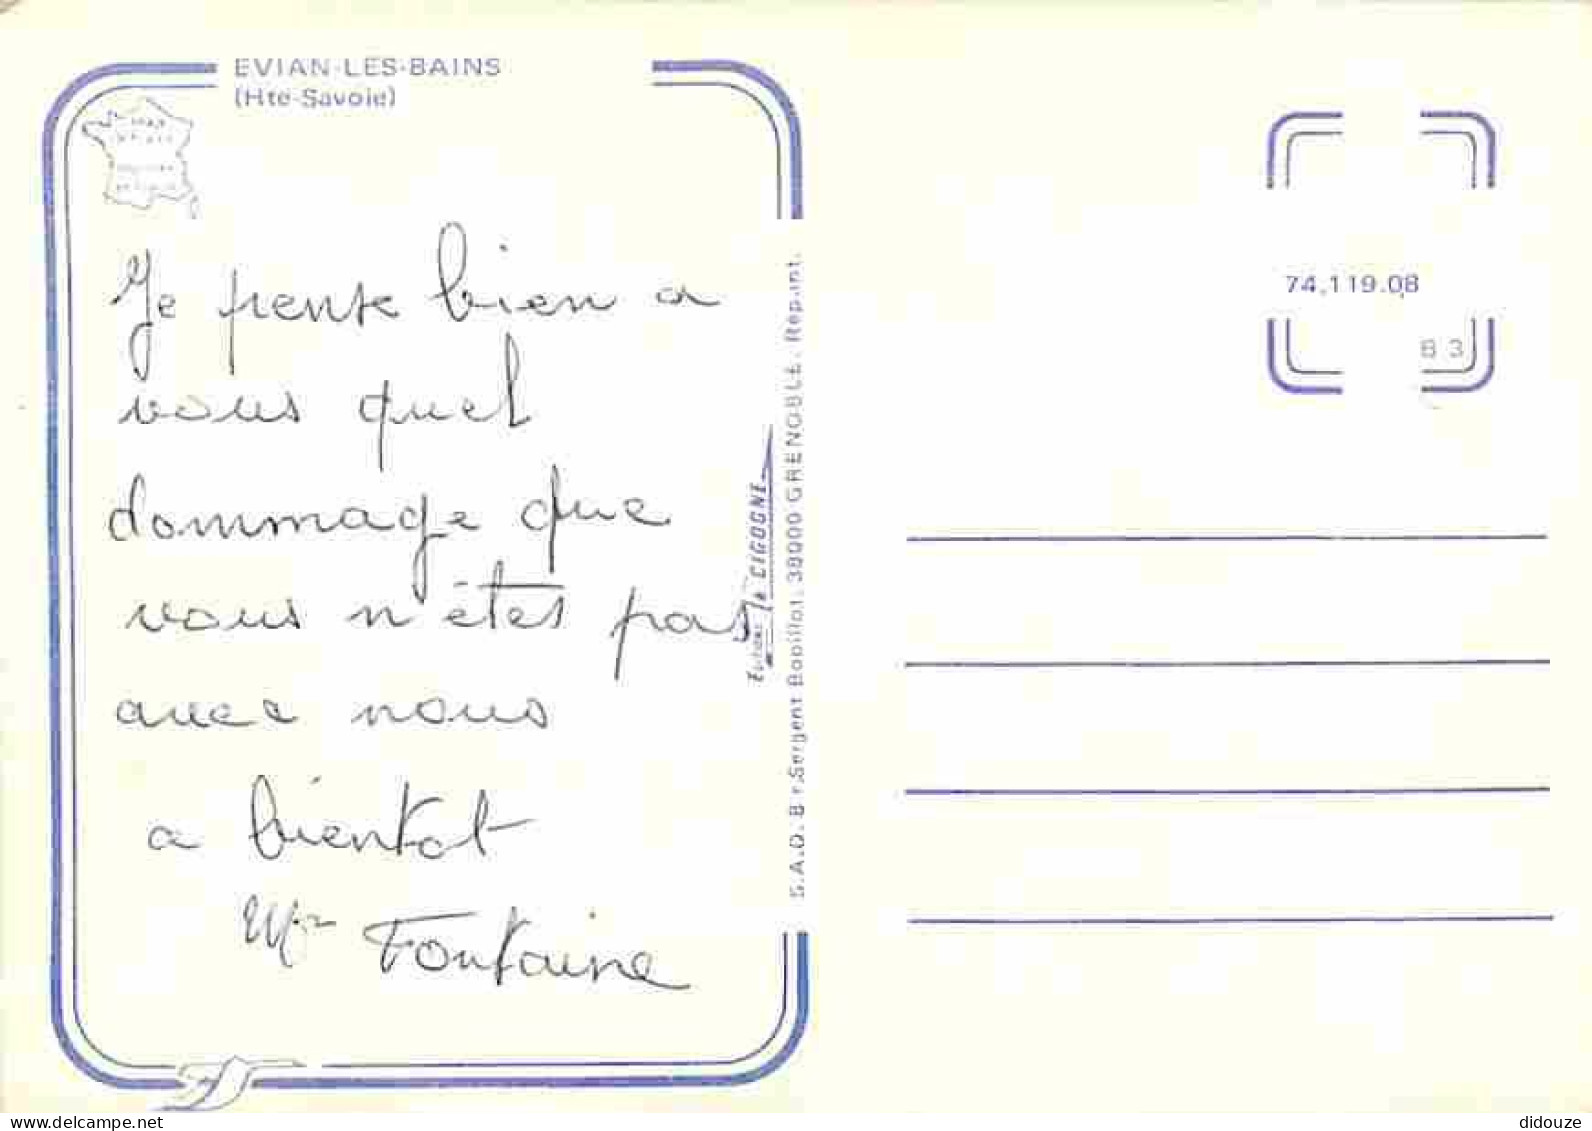 EVIAN-LES-BAINS
(Hte-Savoie)
Je pense bien a
vous quel
dommage que
vous n'êtes pas
avec nous
a bientot
Mme Fontaine
Editions la CIGOGNE
S.A.D. 8 r. Sergent Bobillot. 38000 GRENOBLE. Rep. int.
74.119.08
B 3
www.delcampe.net
didouze